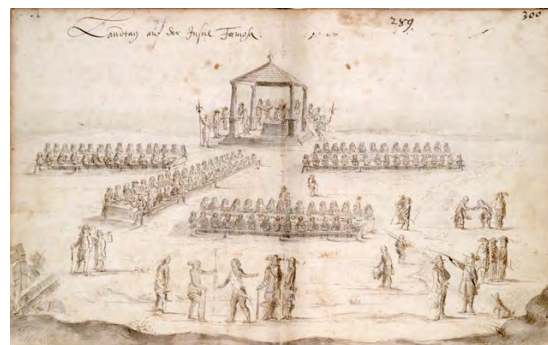 Landtag auf der Insul Formosa. 289. 300